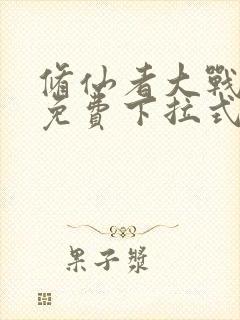 脩仙者大戰
免費下拉式
果子漿